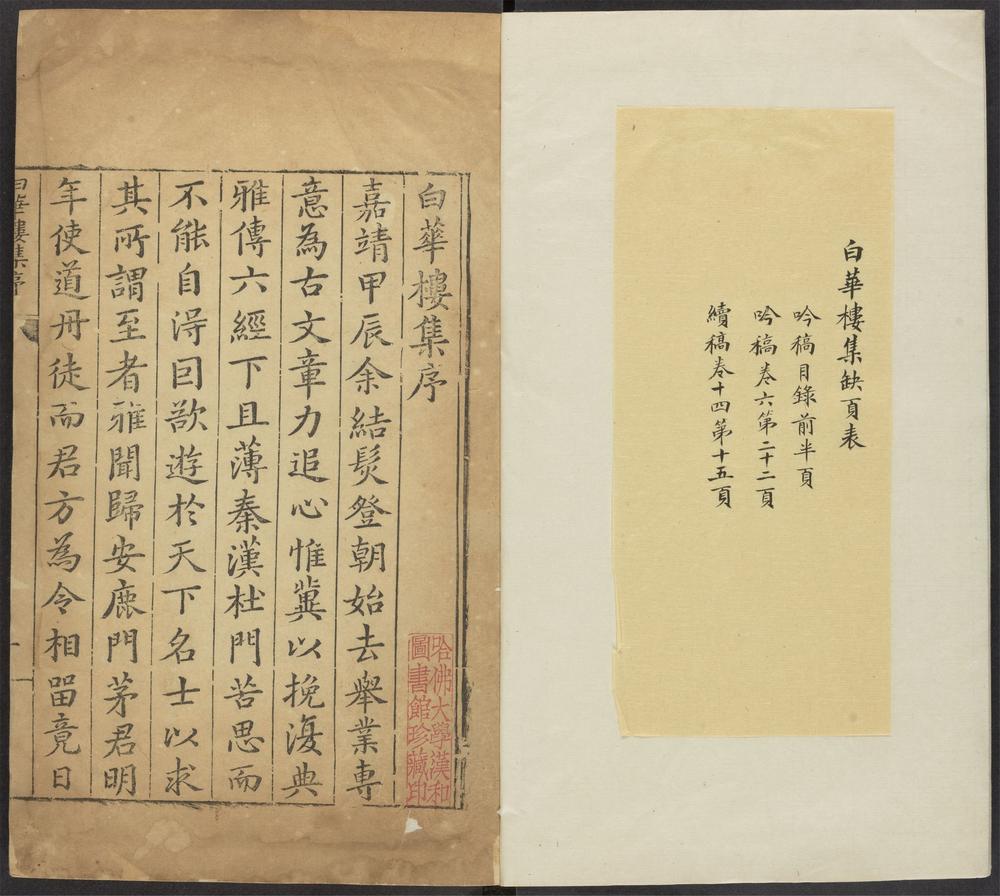 白華樓集缺頁表
吟稿目錄前半頁
吟稿卷六第二十二頁
續稿卷十四第十五頁
白華樓集序
嘉靖甲辰余結髮登朝始去舉業專
意為古文章力追心惟冀以挽復典
雅傳六經下且薄秦漢杜門苦思而
不能自淂囙欲遊於天下名士以求
其所謂至者雅聞歸安鹿門茅君明
年使道丹徒而君方為令相畱竟日
白華樓集序
一
哈佛大學漢和
圖書館珍藏印